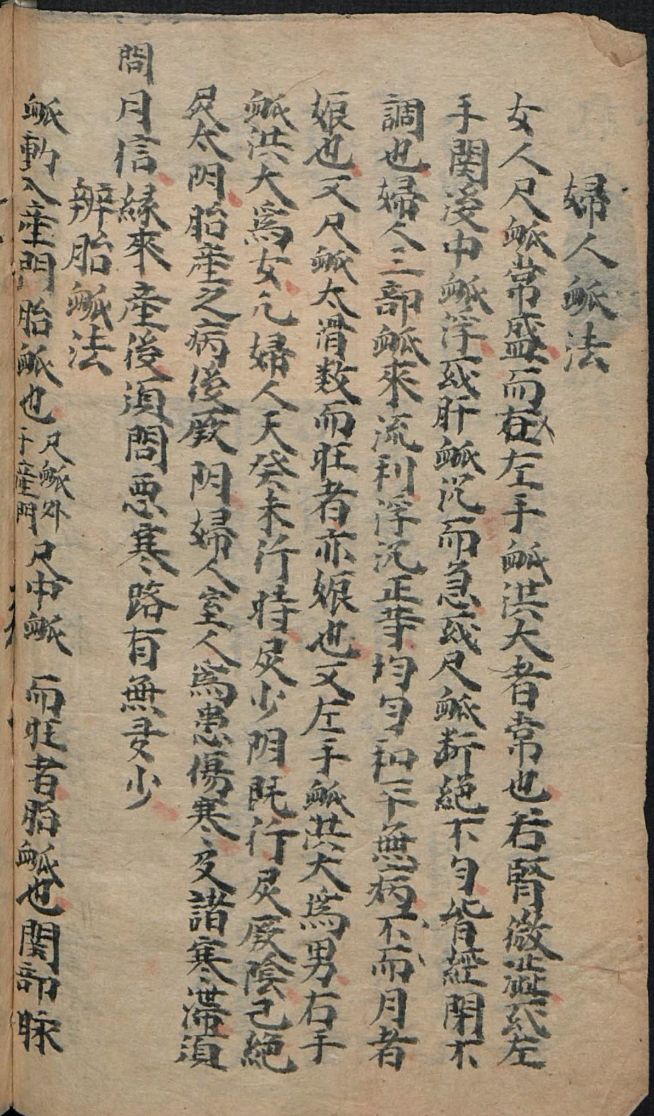 婦人䘑法
女人尺䘑常盛而右左手䘑洪大者常也若腎微澁或左
手関後中䘑浮或肝䘑沉而急或尺䘑断絕不匀皆經閉不
調也婦人三部䘑來流利浮沉正等均匀和平無病不而月者
娠也又尺䘑太滑数而旺者亦娠也又左手䘑洪大爲男右手
䘑洪大爲女凢婦人天癸未行時炅少阴既行炅厥陰己絕
炅太阴胎産之病後厥阴婦人室人爲患傷寒及諸寒滯湏
問月信緣來産後湏問恶寒路有無多少
辨胎䘑法
䘑動入産門胎䘑也尺䘑外于産門尺中䘑而旺者胎䘑也関部脉